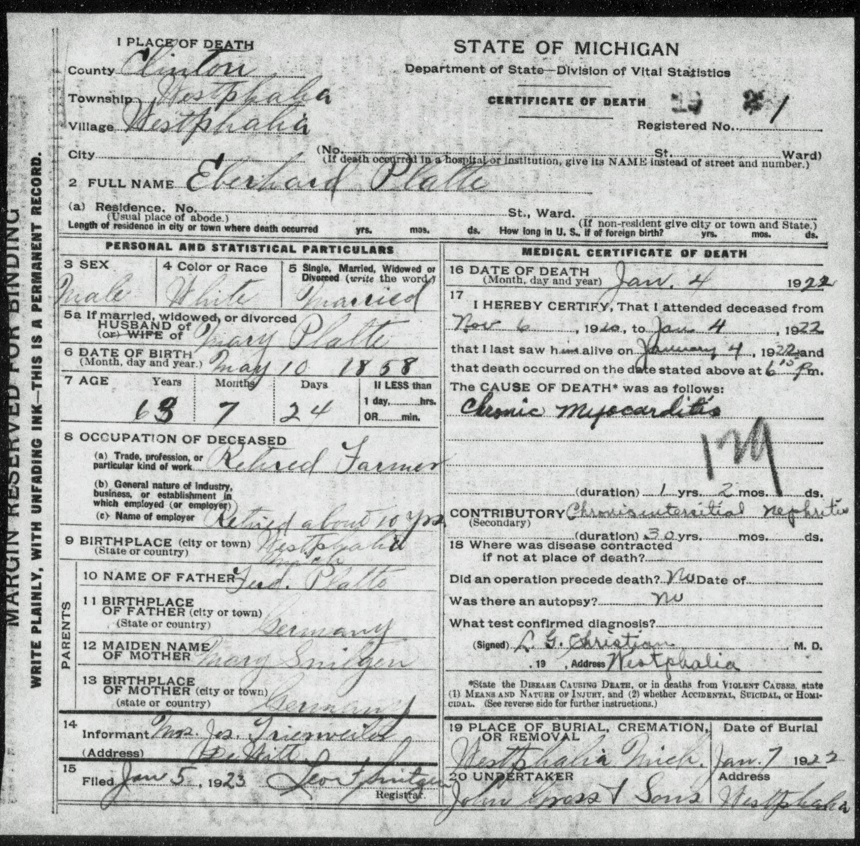 MARGIN RESERVED FOR BINDING
WRITE PLAINLY, WITH UNFADING INK—THIS IS A PERMANENT RECORD.
1 PLACE OF DEATH
County Clinton
Township Westphalia
Village Westphalia
City
STATE OF MICHIGAN
Department of State—Division of Vital Statistics
CERTIFICATE OF DEATH 19 2 1
Registered No.
(No. St. Ward)
(If death occurred in a hospital or institution, give its NAME instead of street and number.)
2 FULL NAME Eberhard Platte
(a) Residence. No. St., Ward.
(Usual place of abode.) (If non-resident give city or town and State.)
Length of residence in city or town where death occurred yrs. mos. ds. How long in U. S., if of foreign birth? yrs. mos. ds.
PERSONAL AND STATISTICAL PARTICULARS
3 SEX
Male
4 Color or Race
White
5 Single, Married, Widowed or Divorced (write the word)
Married
5a If married, widowed, or divorced
HUSBAND of
(or) WIFE of Mary Platte
6 DATE OF BIRTH
(Month, day and year.) May 10 1858
7 AGE Years Months Days If LESS than
1 day, hrs.
OR min.
63 7 24
8 OCCUPATION OF DECEASED
(a) Trade, profession, or
particular kind of work Retired Farmer
(b) General nature of industry,
business, or establishment in
which employed (or employer)
(c) Name of employer Retired about 10 yrs
9 BIRTHPLACE (city or town) Westphalia
(State or country) Mich
PARENTS
10 NAME OF FATHER Ferd. Platte
11 BIRTHPLACE
OF FATHER (city or town)
(State or country) Germany
12 MAIDEN NAME
OF MOTHER Mary Smitgen
13 BIRTHPLACE
OF MOTHER (city or town)
(state or country) Germany
14
Informant Mrs. Jos. Trierweiler
(Address) DeWitt
15
Filed Jan 5, 1923 Leo Smitgen
Registrar.
MEDICAL CERTIFICATE OF DEATH
16 DATE OF DEATH
(Month, day and year) Jan. 4 1922
17
I HEREBY CERTIFY, That I attended deceased from
Nov 6, 1920, to Jan 4, 1922
that I last saw him alive on January 4, 1922 and
that death occurred on the date stated above at 6 P.m.
The CAUSE OF DEATH* was as follows:
Chronic Myocarditis
129
(duration) 1 yrs. 2 mos. ds.
CONTRIBUTORY Chronic intersitial nephritis
(Secondary)
(duration) 30 yrs. mos. ds.
18 Where was disease contracted
if not at place of death?
Did an operation precede death? No Date of
Was there an autopsy? No
What test confirmed diagnosis?
(Signed) L. G. Christian M. D.
, 19 , Address Westphalia
*State the DISEASE CAUSING DEATH, or in deaths from VIOLENT CAUSES, state
(1) MEANS AND NATURE OF INJURY, and (2) whether ACCIDENTAL, SUICIDAL, OR HOMI-
CIDAL. (See reverse side for further instructions.)
19 PLACE OF BURIAL, CREMATION, OR REMOVAL
Westphalia Mich.
Date of Burial
Jan. 7 1922
20 UNDERTAKER
John Gross & Sons
Address
Westphalia